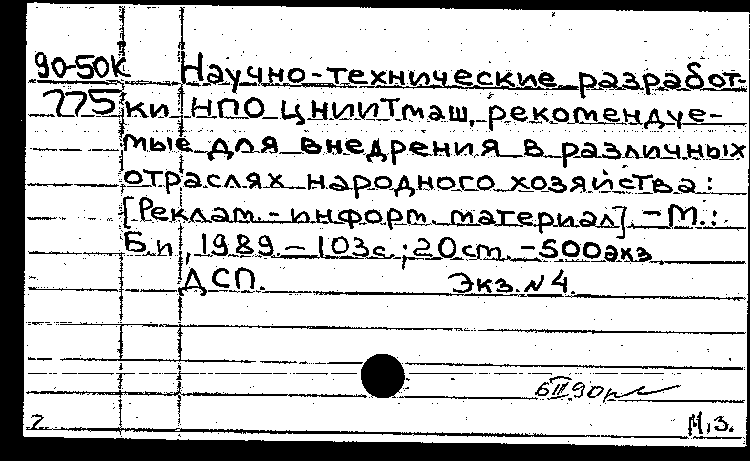 90-50К Научно-технические разработ-
775 ки НПО ЦНИИТмаш, рекомендуе-
мые для внедрения в различных
отраслях народного хозяйства:
[Реклам.-информ. материал]. - М.:
Б.и, 1989 - 103с.; 20ст. - 500экз
ДСП. Экз. №4.
6 III 90
7 М.З.